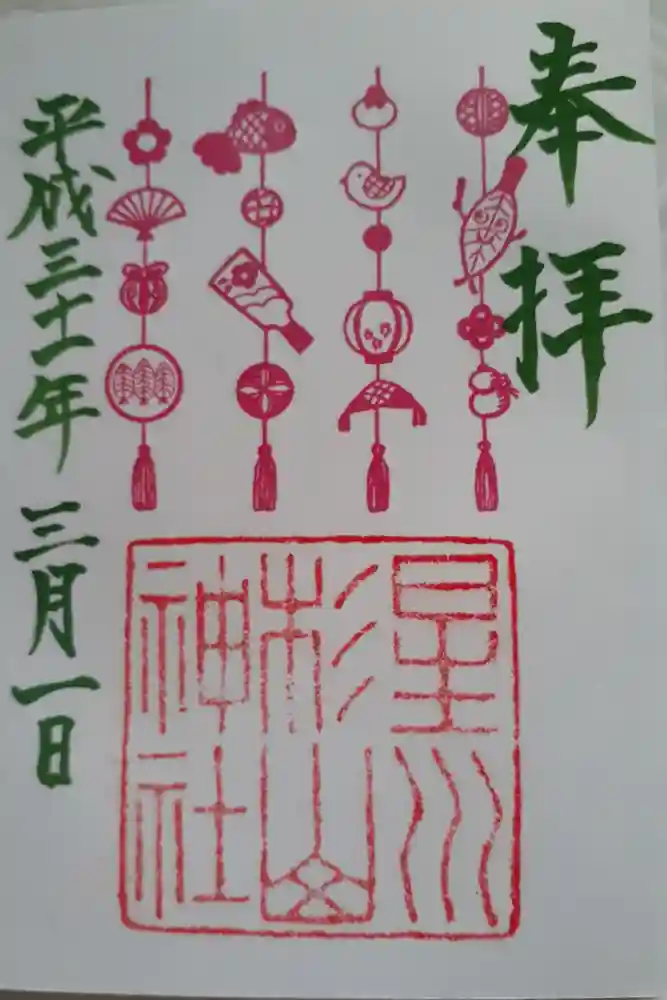 奉拝
星川
杉山
神社
平成三十一年三月一日